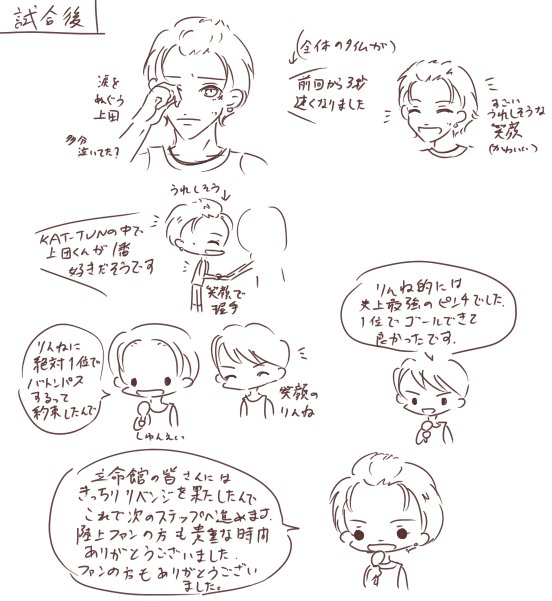 試合後
涙を
ぬぐう
上田
多分
泣いてた?
(全体のタイムが)
前回から3秒
速くなりました
すごい
うれしそうな
笑顔
(かわいい)
うれしそう
KAT-TUNの中で
上田くんが1番
好きだそうです
笑顔で
握手
りんね的には
史上最強のピンチでした.
1位でゴールできて
良かったです.
りんねに
絶対1位で
バトンパス
するって
約束したんで
しゅんえい
笑顔の
りんね
立命館の皆さんには
きっちりリベンジを果たしたんで
これで次のステップへ進めます.
陸上ファンの方も貴重な時間
ありがとうございました.
ファンの方もありがとうござい
ました。